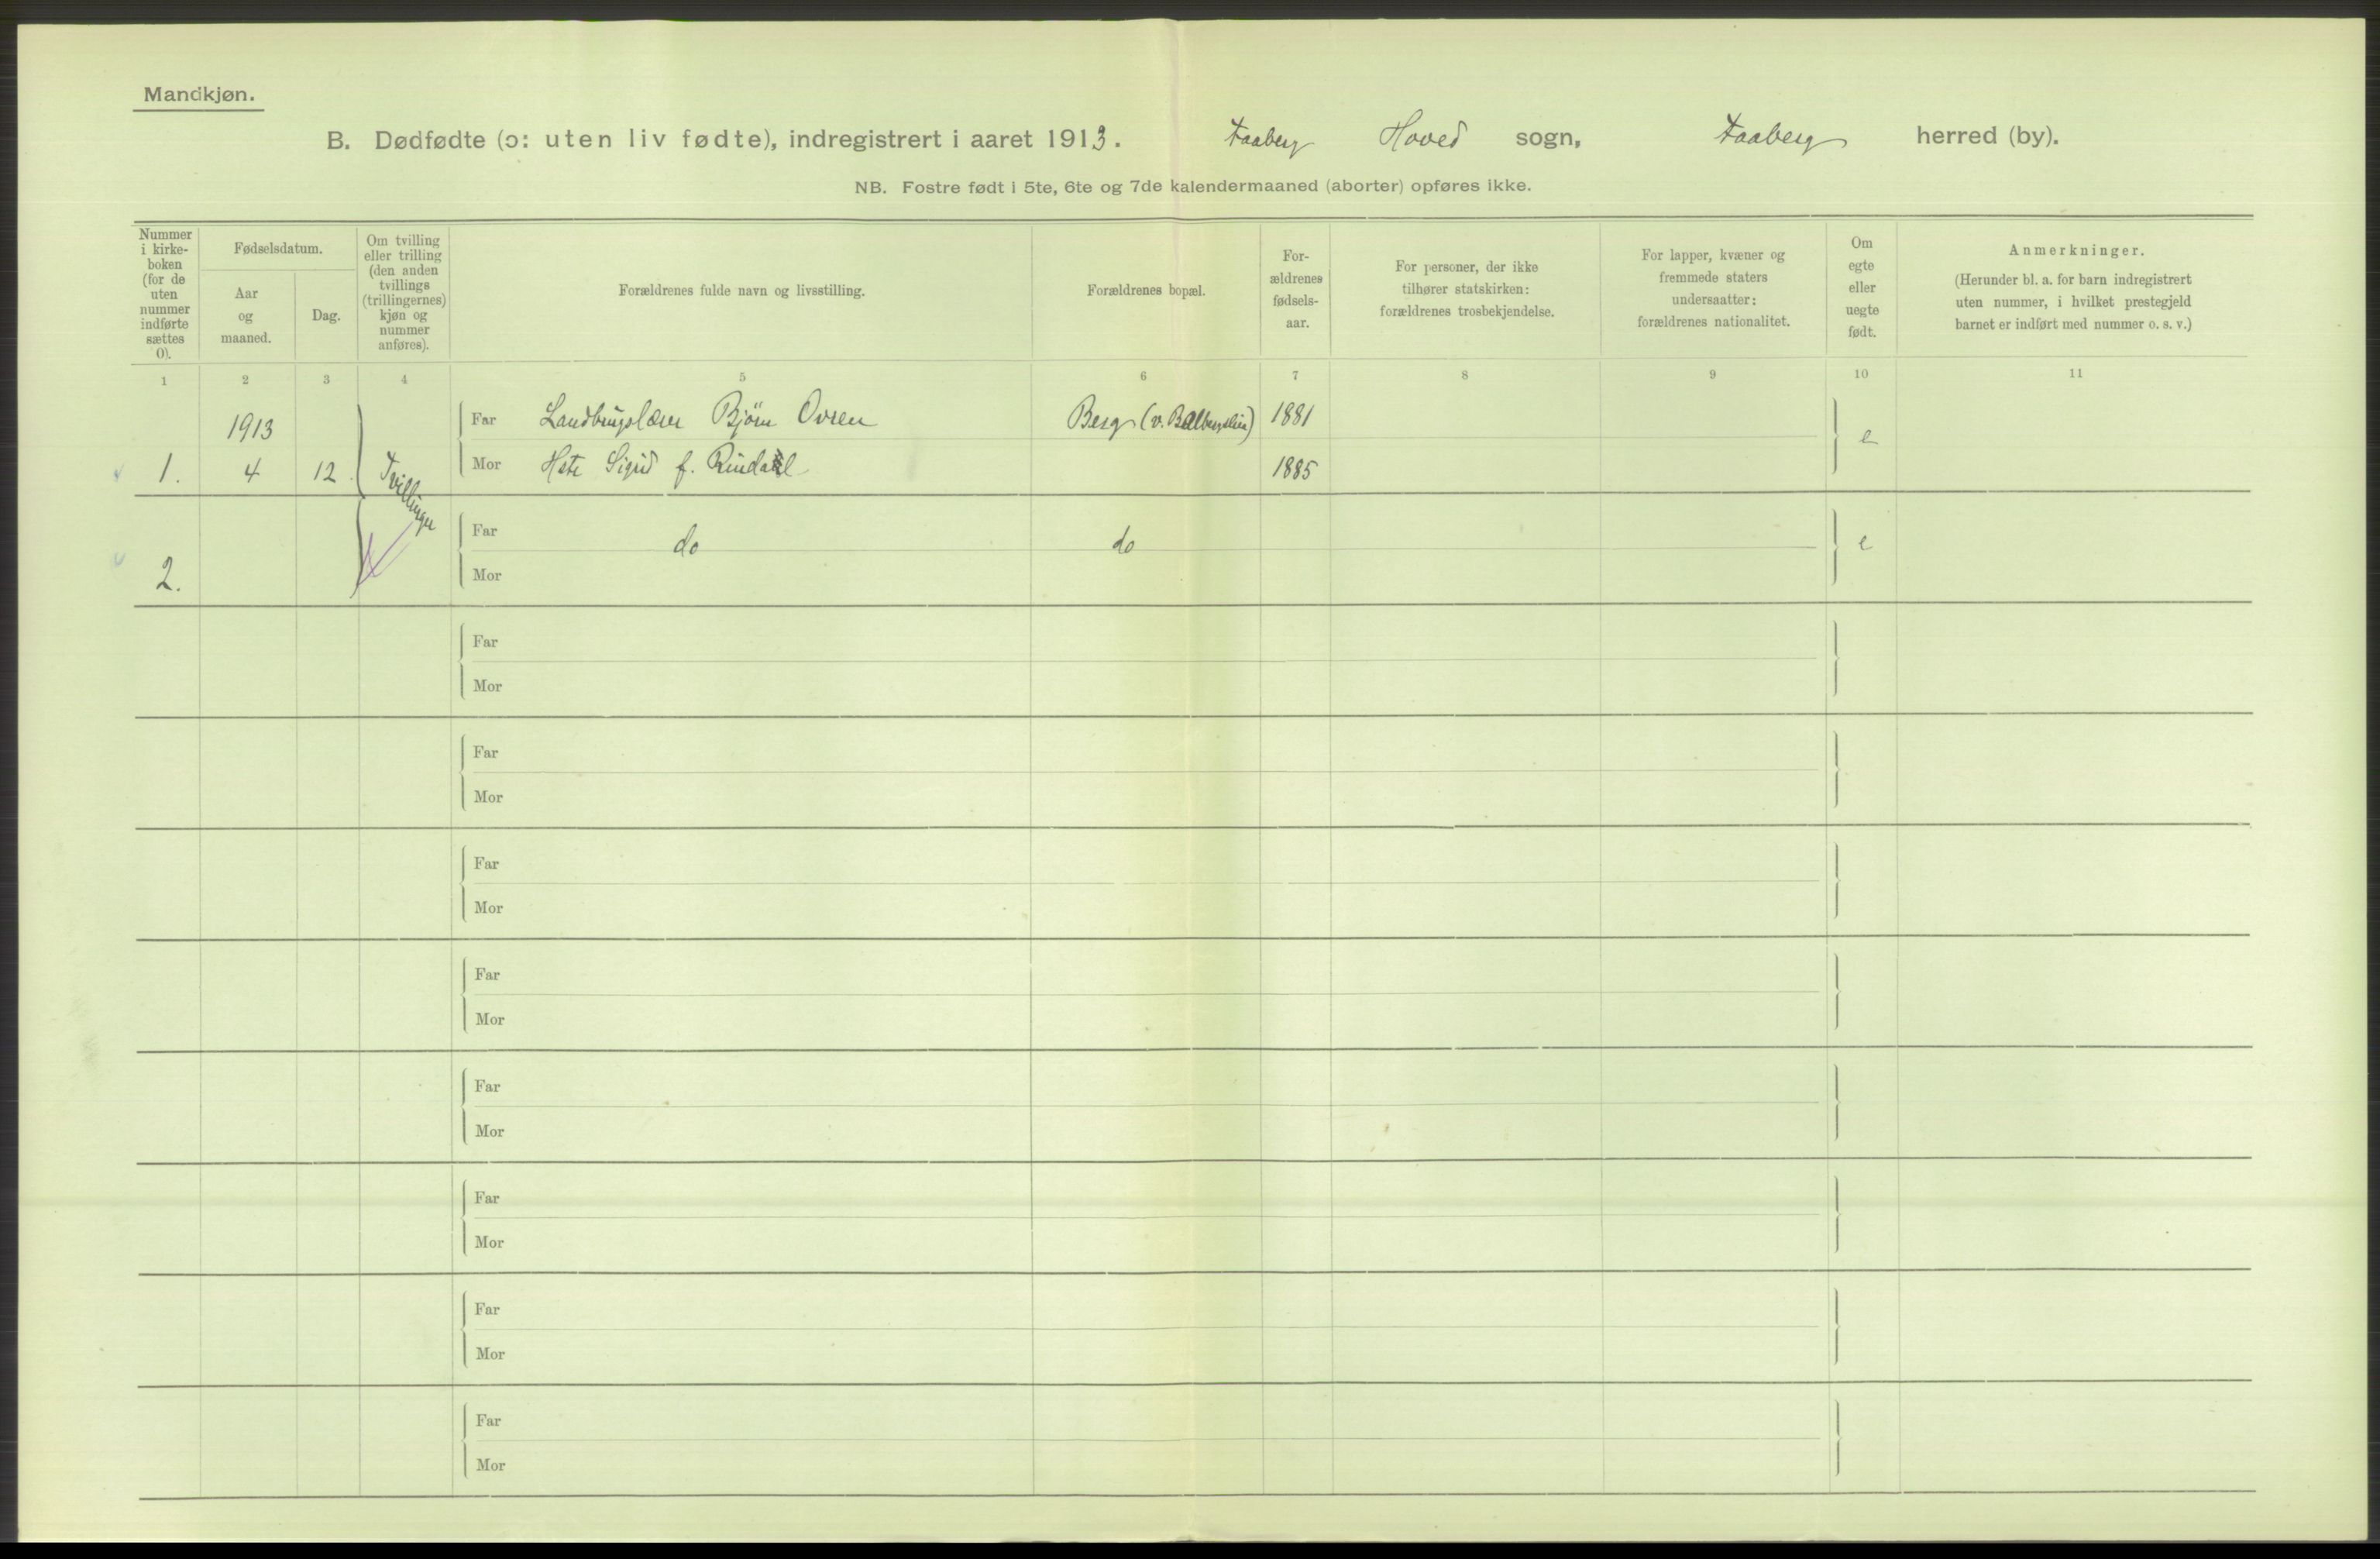 Mandkjøn.
B. Dødfødte (ɔ: uten liv fødte), indregistrert i aaret 1913. Faaberg Hoved sogn, Faaberg herred (by).
NB. Fostre født i 5te, 6te og 7de kalendermaaned (aborter) opføres ikke.
Nummer
i kirke-
boken
(for de
uten
nummer
indførte
sættes
0).
Fødselsdatum.
Aar
og
maaned.
Dag.
Om tvilling
eller trilling
(den anden
tvillings
(trillingernes)
kjøn og
nummer
anføres).
Forældrenes fulde navn og livsstilling.
Forældrenes bopæl.
For-
ældrenes
fødsels-
aar.
For personer, der ikke
tilhører statskirken:
forældrenes trosbekjendelse.
For lapper, kvæner og
fremmede staters
undersaatter:
forældrenes nationalitet.
Om
egte
eller
uegte
født.
Anmerkninger.
(Herunder bl. a. for barn indregistrert
uten nummer, i hvilket prestegjeld
barnet er indført med nummer o. s. v.)
1 2 3 4 5 6 7 8 9 10 11
1913 Far Landbrugslærer Bjørn Ovren Berg (v. Balbergslien) 1881 e
1. 4 12 Tvillinger Mor Hstr Sigrid f. Rindal 1885
Far do do e
2. Mor
Far
Mor
Far
Mor
Far
Mor
Far
Mor
Far
Mor
Far
Mor
Far
Mor
Far
Mor